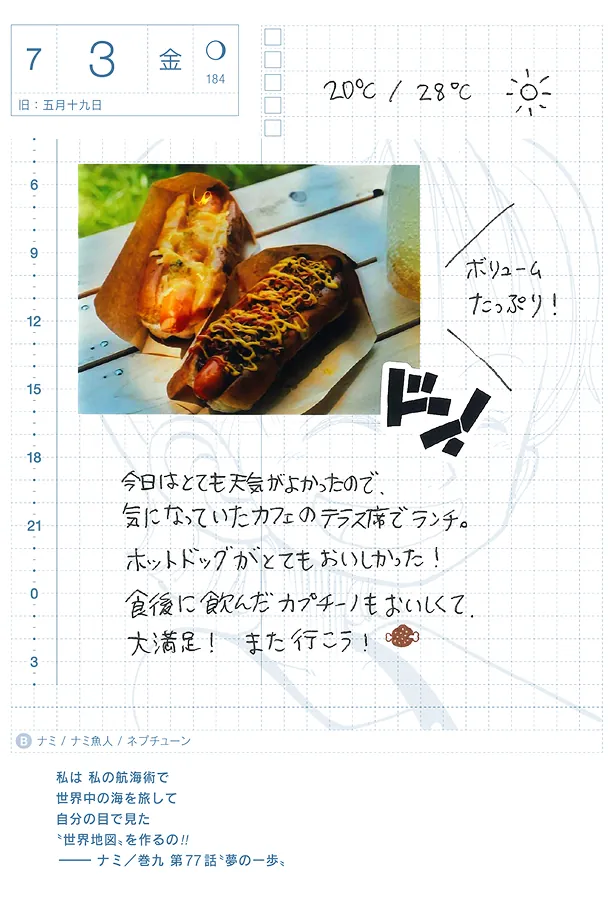 7 3 金
184
旧：五月十九日
20℃ / 28℃
6
9
12
15
18
21
0
3
ボリューム
たっぷり！
ドン！
今日はとても天気がよかったので、
気になっていたカフェのテラス席でランチ。
ホットドッグがとてもおいしかった！
食後に飲んだカプチーノもおいしくて、
大満足！ また行こう！
B ナミ / ナミ魚人 / ネプチューン
私は 私の航海術で
世界中の海を旅して
自分の目で見た
〝世界地図〟を作るの!!
―― ナミ／巻九 第77話〝夢の一歩〟